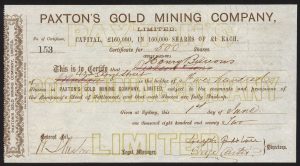 PAXTON'S GOLD MINING COMPANY,
LIMITED.
No. of Certificate,
CAPITAL, £160,000, IN 160,000 SHARES OF £1 EACH.
153
Certificate for 500 Shares
This is to Certify that Thomas Burrows
is the holder of Five hundred
Shares in PAXTON'S GOLD MINING COMPANY, LIMITED, subject to the covenants and provisions of
the Company's Deed of Settlement, and that such Shares are fully Paid-up.
Given at Sydney, this 1st day of June
one thousand eight hundred and seventy two
Legal Manager.
Directors.